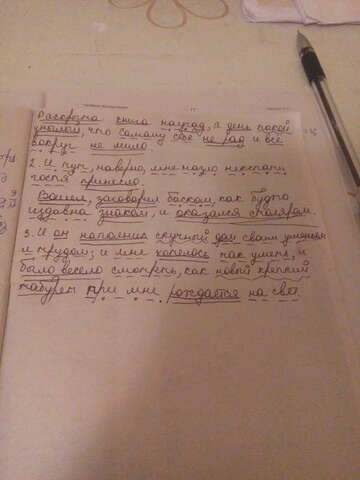 Раскрыта книга наугад, а день такой
унылый, что самому себе не рад и всё
вокруг не мило.
2. И тут, наверно, мне назло некстати
гостя принесло.
Вошел, заговорил баском, как будто
издавна знаком, и оказался столяром.
3. И он наполнил скучный дом своим уменьем
и трудом; и мне хотелось так уметь, и
было весело смотреть, как новый крепкий
табурет при мне рождается на свет